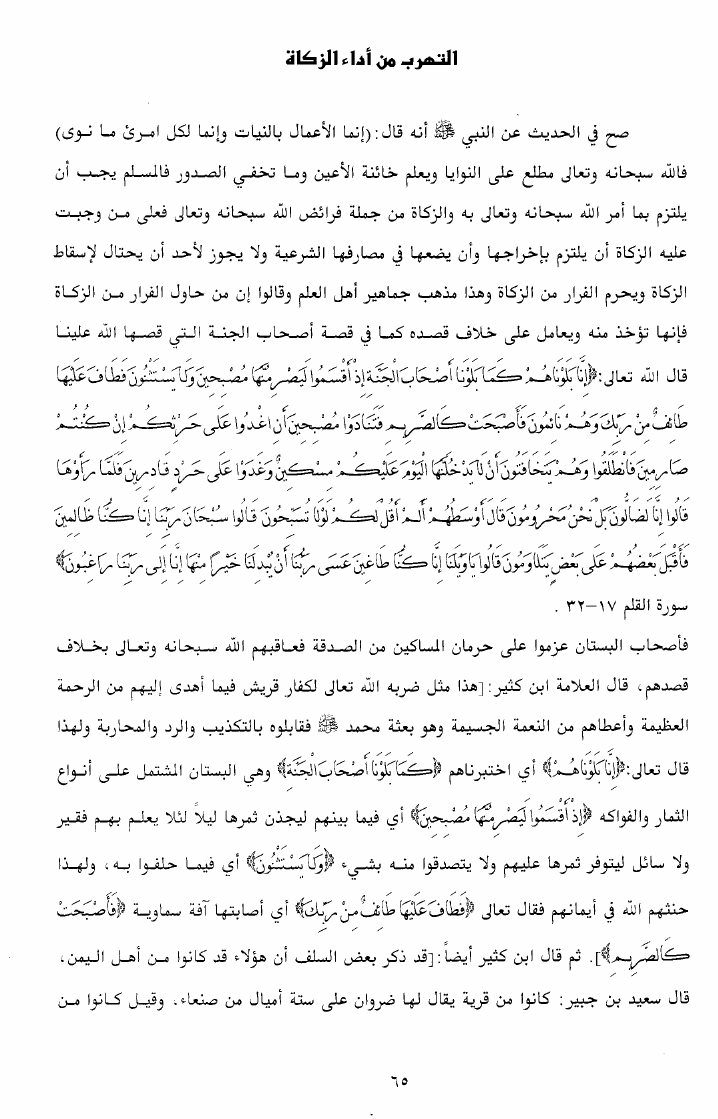 التهرب من أداء الزكاة
صح في الحديث عن النبي ﷺ أنه قال:(إنما الأعمال بالنيات وإنما لكل امرئ ما نوى)
فالله سبحانه وتعالى مطلع على النوايا ويعلم خائنة الأعين وما تخفي الصدور فالمسلم يجب أن
يلتزم بما أمر الله سبحانه وتعالى به والزكاة من جملة فرائض الله سبحانه وتعالى فعلى من وجبت
عليه الزكاة أن يلتزم بإخراجها وأن يضعها في مصارفها الشرعية ولا يجوز لأحد أن يحتال لإسقاط
الزكاة ويحرم الفرار من الزكاة وهذا مذهب جماهير أهل العلم وقالوا إن من حاول الفرار من الزكاة
فإنها تؤخذ منه ويعامل على خلاف قصده كما في قصة أصحاب الجنة التي قصها الله علينا
قال الله تعالى:﴿إِنَّا بَلَوْنَاهُمْ كَمَا بَلَوْنَا أَصْحَابَ الْجَنَّةِ إِذْ أَقْسَمُوا لَيَصْرِمُنَّهَا مُصْبِحِينَ وَلَا يَسْتَثْنُونَ فَطَافَ عَلَيْهَا
طَائِفٌ مِنْ رَبِّكَ وَهُمْ نَائِمُونَ فَأَصْبَحَتْ كَالصَّرِيمِ فَتَنَادَوْا مُصْبِحِينَ أَنِ اغْدُوا عَلَى حَرْثِكُمْ إِنْ كُنْتُمْ
صَارِمِينَ فَانْطَلَقُوا وَهُمْ يَتَخَافَتُونَ أَنْ لَا يَدْخُلَنَّهَا الْيَوْمَ عَلَيْكُمْ مِسْكِينٌ وَغَدَوْا عَلَى حَرْدٍ قَادِرِينَ فَلَمَّا رَأَوْهَا
قَالُوا إِنَّا لَضَالُّونَ بَلْ نَحْنُ مَحْرُومُونَ قَالَ أَوْسَطُهُمْ أَلَمْ أَقُلْ لَكُمْ لَوْلَا تُسَبِّحُونَ قَالُوا سُبْحَانَ رَبِّنَا إِنَّا كُنَّا ظَالِمِينَ
فَأَقْبَلَ بَعْضُهُمْ عَلَى بَعْضٍ يَتَلَاوَمُونَ قَالُوا يَا وَيْلَنَا إِنَّا كُنَّا طَاغِينَ عَسَى رَبُّنَا أَنْ يُبْدِلَنَا خَيْرًا مِنْهَا إِنَّا إِلَى رَبِّنَا رَاغِبُونَ﴾
سورة القلم ١٧-٣٢ .
فأصحاب البستان عزموا على حرمان المساكين من الصدقة فعاقبهم الله سبحانه وتعالى بخلاف
قصدهم، قال العلامة ابن كثير:[هذا مثل ضربه الله تعالى لكفار قريش فيما أهدى إليهم من الرحمة
العظيمة وأعطاهم من النعمة الجسيمة وهو بعثة محمد ﷺ فقابلوه بالتكذيب والرد والمحاربة ولهذا
قال تعالى:﴿إِنَّا بَلَوْنَاهُمْ﴾ أي اختبرناهم ﴿كَمَا بَلَوْنَا أَصْحَابَ الْجَنَّةِ﴾ وهي البستان المشتمل على أنواع
الثمار والفواكه ﴿إِذْ أَقْسَمُوا لَيَصْرِمُنَّهَا مُصْبِحِينَ﴾ أي فيما بينهم ليجذن ثمرها ليلاً لئلا يعلم بهم فقير
ولا سائل ليتوفر ثمرها عليهم ولا يتصدقوا منه بشيء ﴿وَلَا يَسْتَثْنُونَ﴾ أي فيما حلفوا به، ولهذا
حنثهم الله في أيمانهم فقال تعالى ﴿فَطَافَ عَلَيْهَا طَائِفٌ مِنْ رَبِّكَ﴾ أي أصابتها آفة سماوية ﴿فَأَصْبَحَتْ
كَالصَّرِيمِ﴾]. ثم قال ابن كثير أيضاً:[قد ذكر بعض السلف أن هؤلاء قد كانوا من أهل اليمن،
قال سعيد بن جبير: كانوا من قرية يقال لها ضروان على ستة أميال من صنعاء، وقيل كانوا من
٦٥